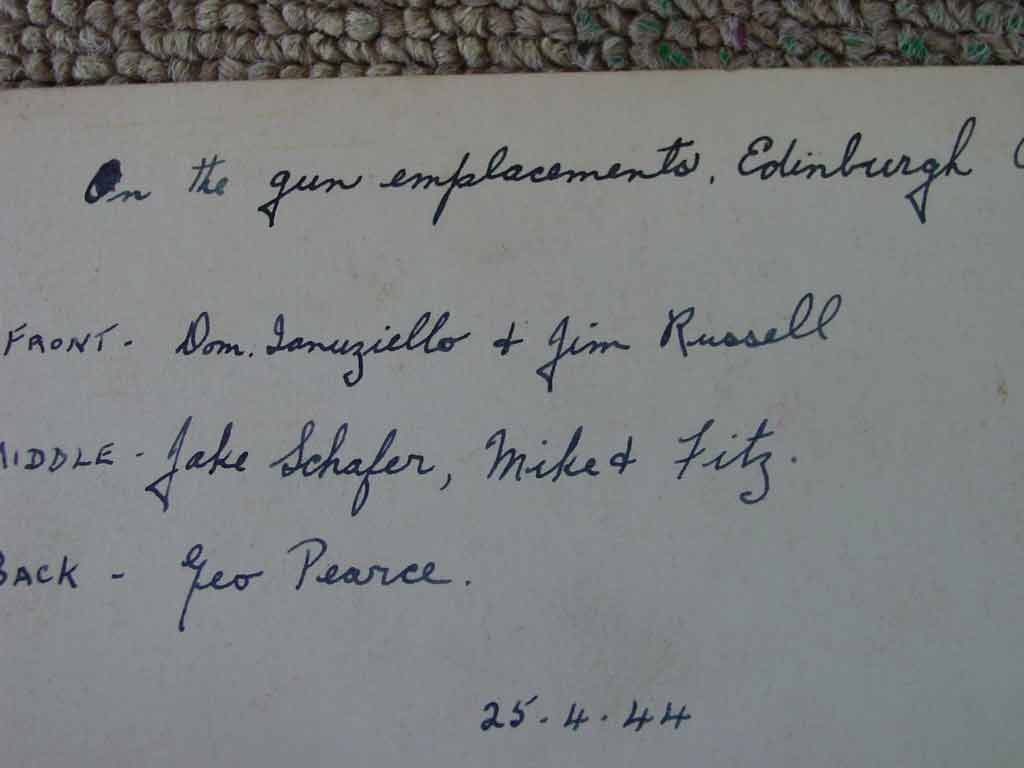 On the gun emplacements, Edinburgh
FRONT - Dom. Ianuziello & Jim Russell
MIDDLE - Jake Schafer, Mike & Fitz.
BACK - Geo Pearce.
25.4.44